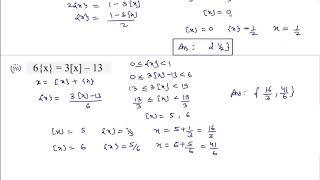 2{x} = 1-3[x]
{x} = 1-3[x] / 2
[x] = 0,
[x] = 0 {x} = 1/2 x = 1/2
Ans: { 1/2 }
(iii) 6{x} = 3[x] – 13
x = [x] + {x}
{x} = 3[x]-13 / 6
0 ≤ {x} < 1
0 ≤ 3[x]-13 < 6
13 ≤ 3[x] < 19
13/3 ≤ [x] < 19/3
[x] = 5, 6
Ans: { 16/3, 41/6 }
[x] = 5 {x} = 1/3 x = 5+1/3 = 16/3
[x] = 6 {x} = 5/6 x = 6+5/6 = 41/6